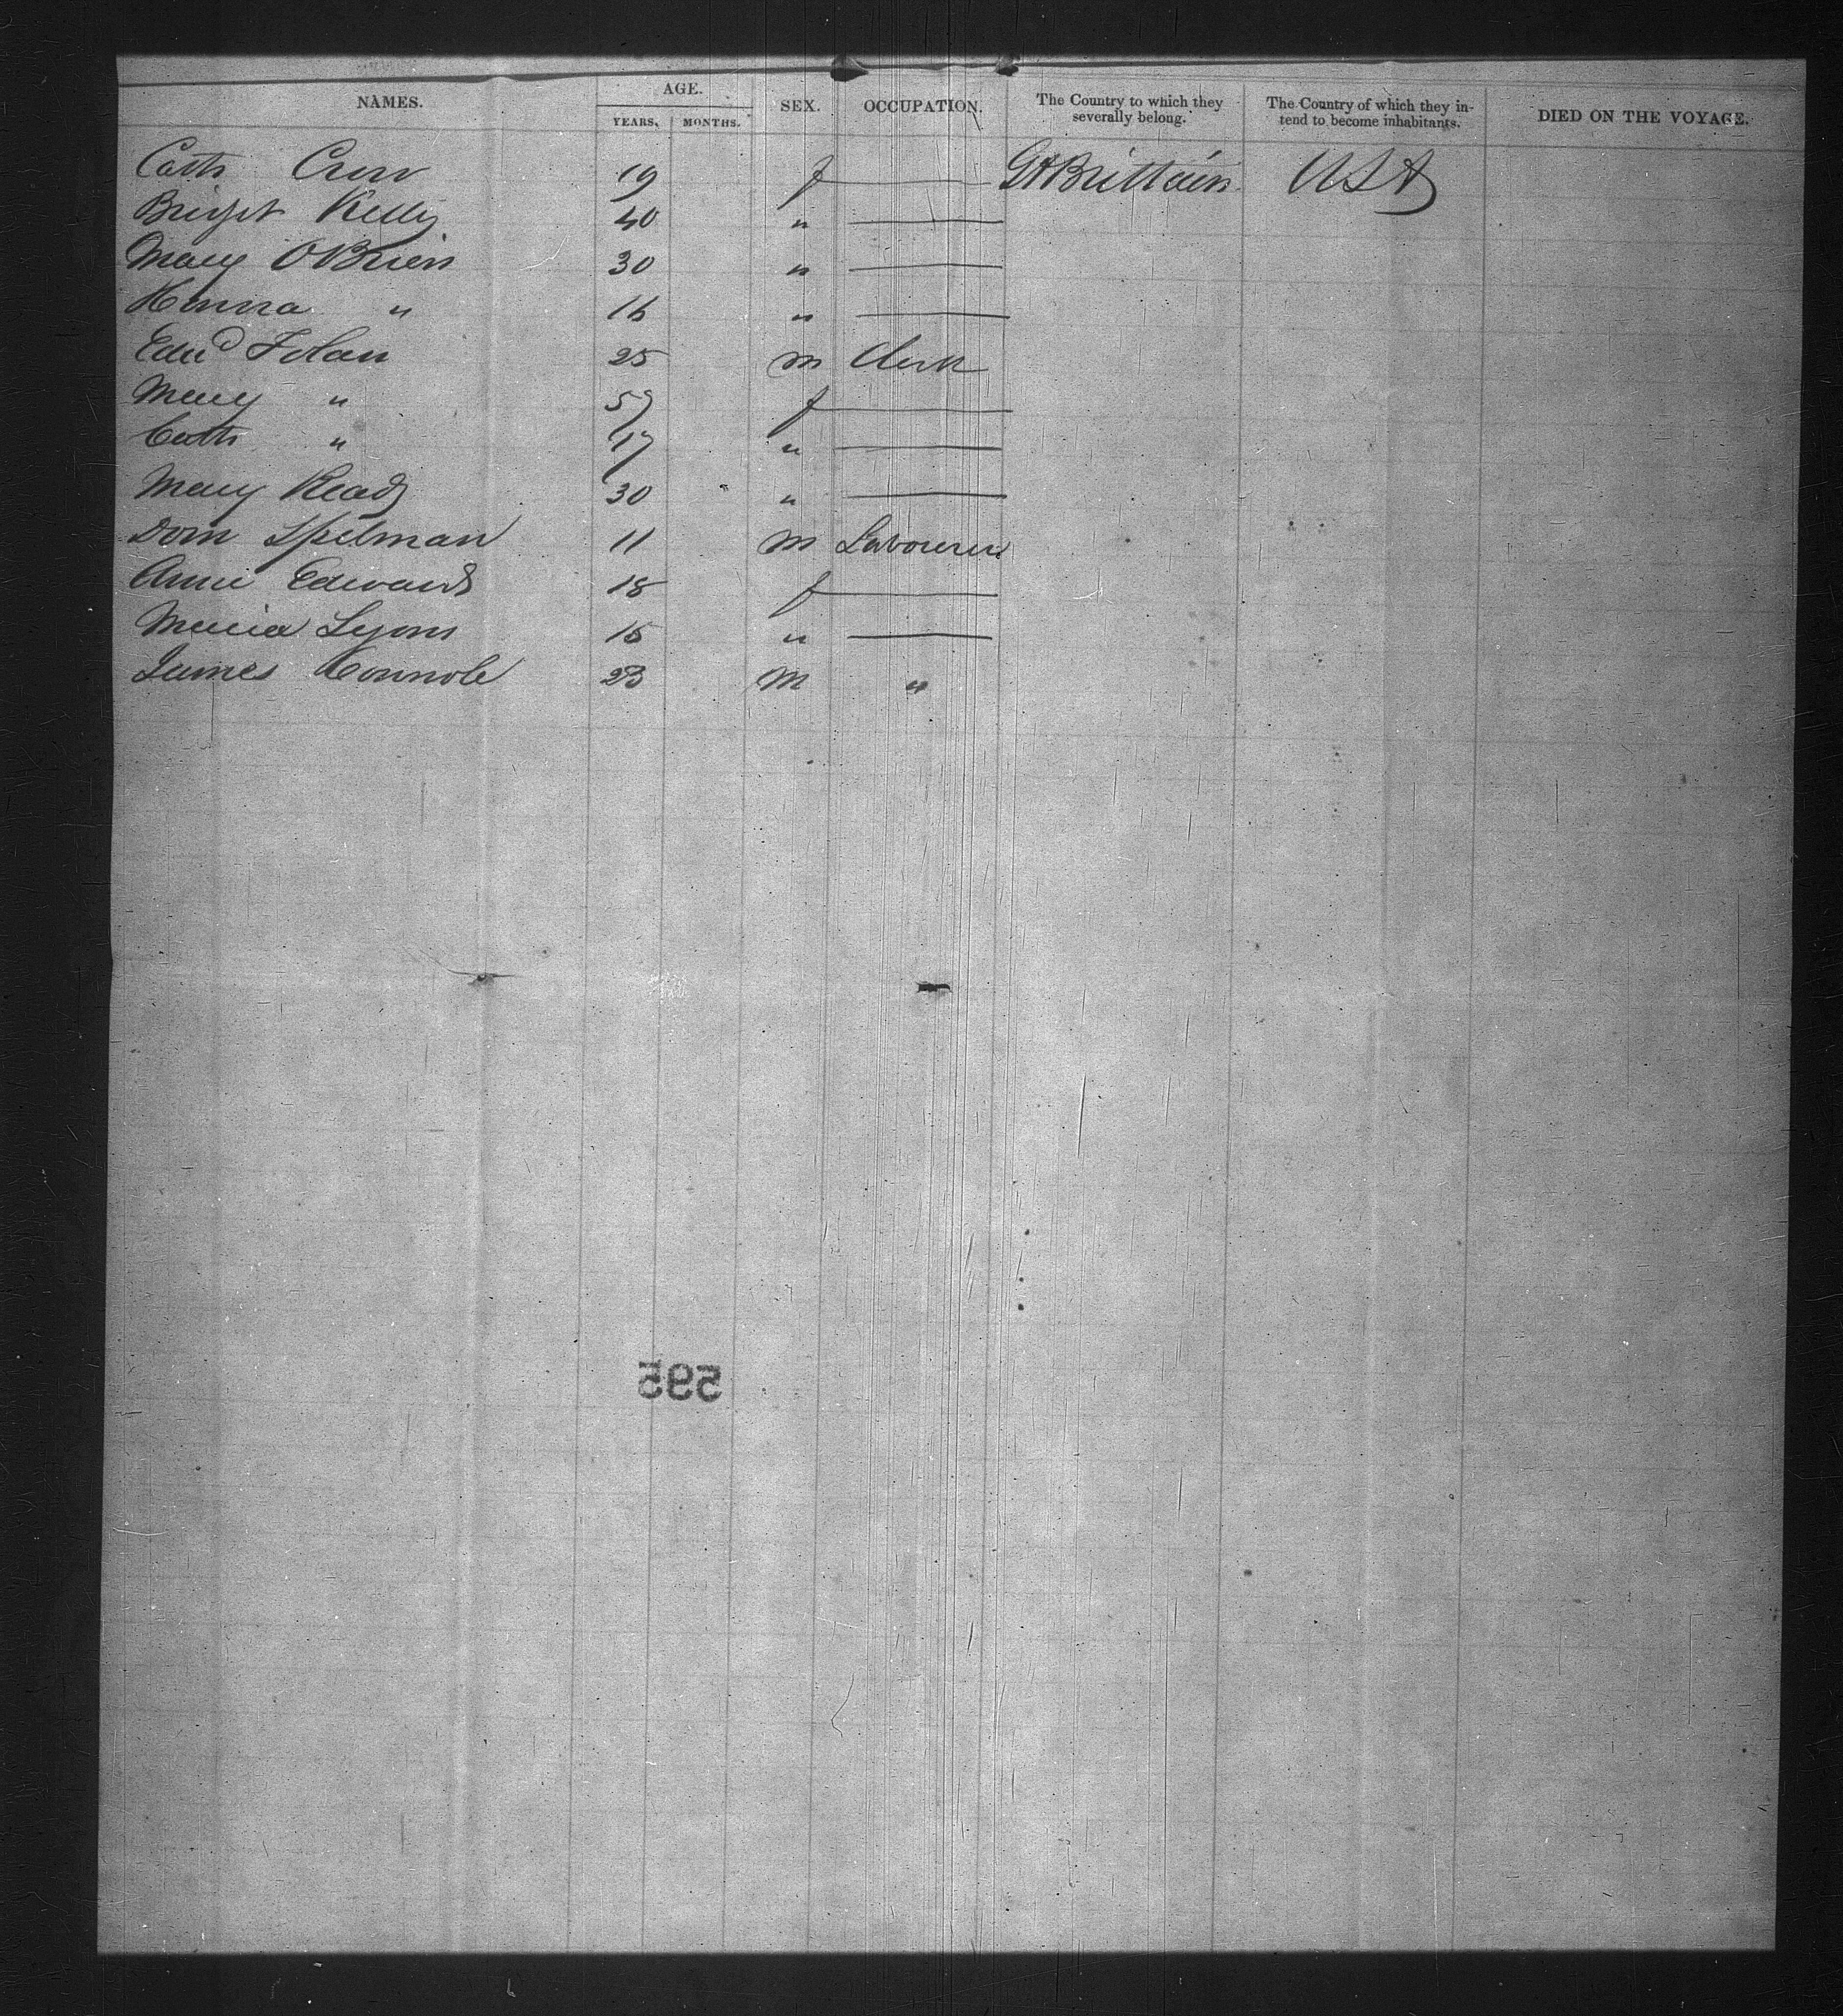 NAMES. AGE. SEX. OCCUPATION. The Country to which they severally belong. The Country of which they intend to become inhabitants. DIED ON THE VOYAGE.
YEARS. MONTHS.
Cath Crow 19 f GtBrittain USA
Bridget Kelly 40 "
Mary OBrien 30 "
Hanna " 16 "
Edwd Folan 25 m Clerk
Mary " 57 f
Cath " 17 "
Mary Ready 30 "
Dom Spelman 11 m Labourer
Annie Edwards 18 f
Maria Lyons "
James Connole 23 m "
595